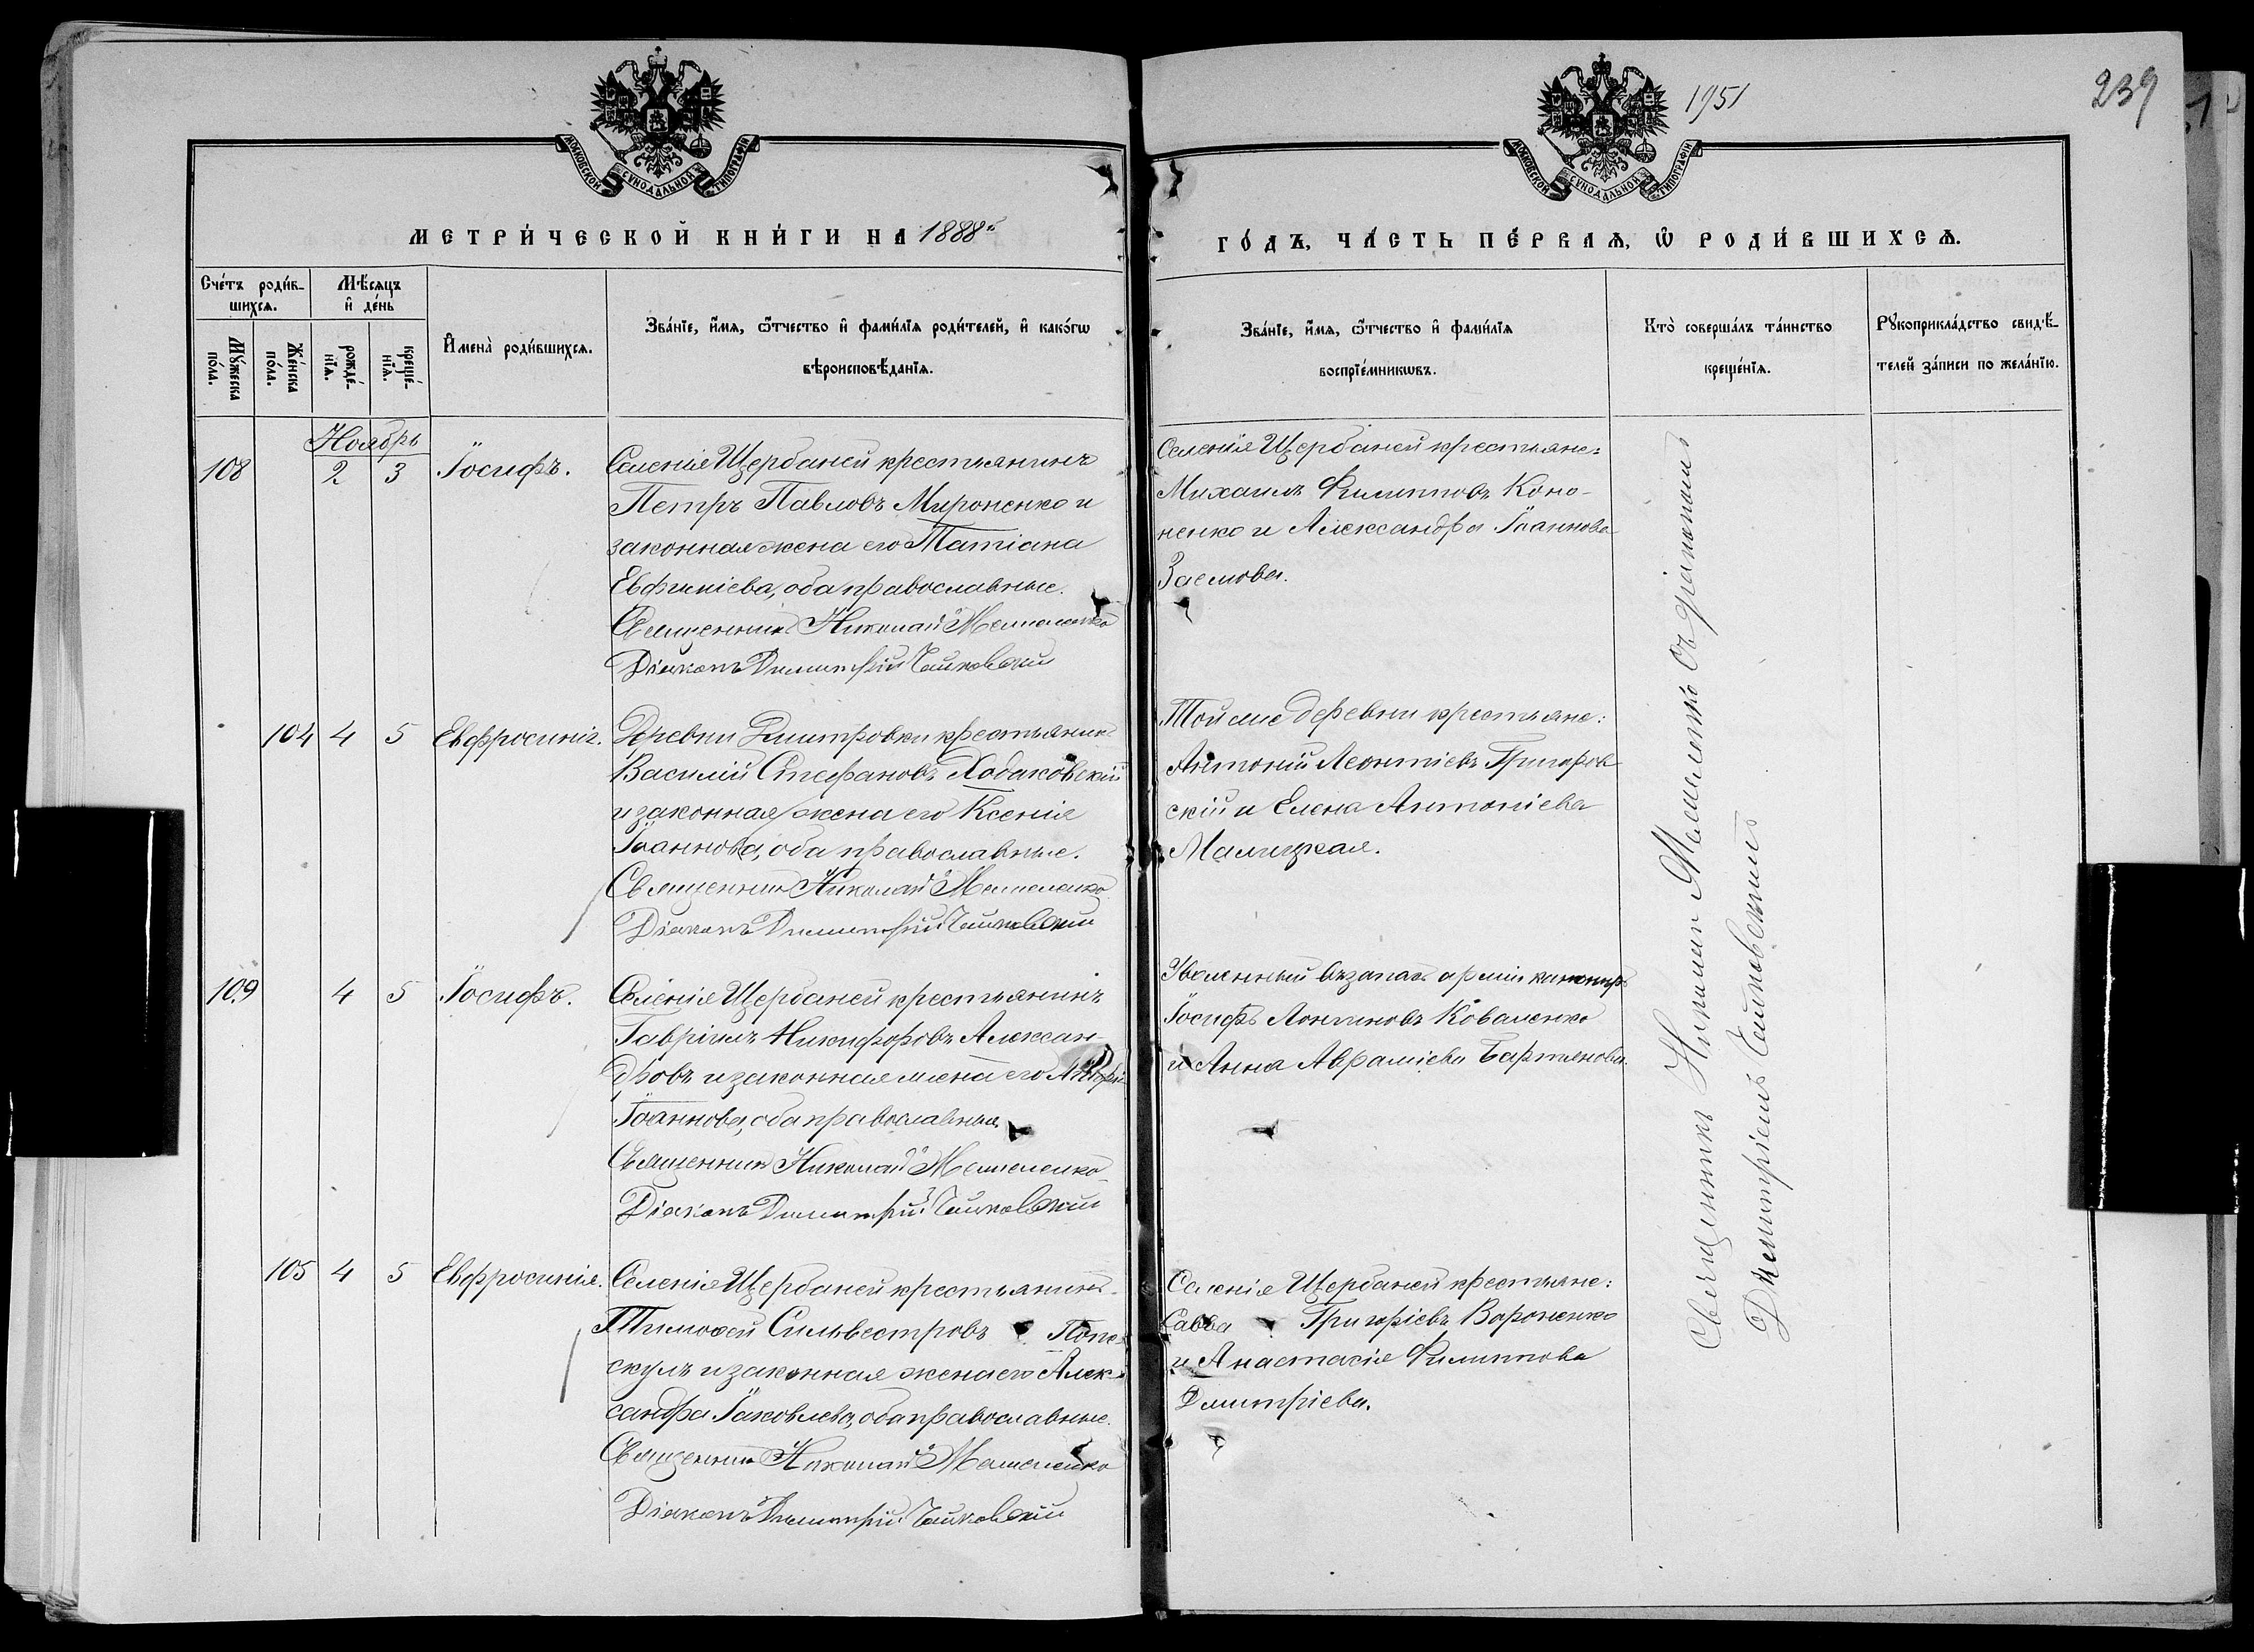 1951
239
МОСКОВСКОЙ СѴНОДАЛЬНОЙ ТИПОГРАФІИ
МОСКОВСКОЙ СѴНОДАЛЬНОЙ ТИПОГРАФІИ
МЕТРИ́ЧЕСКОЙ КНИ́ГИ НА 1888й
ГО́ДЪ, ЧА́СТЬ ПЕ́РВАѦ, Ѿ РОДИ́ВШИХСѦ.
Сче́тъ роди́в-
шихсѧ.
Мꙋ́жеска по́ла.
Же́нска по́ла.
Мѣ́сѧцъ и҆ де́нь
рожде́-
нїѧ.
креще́-
нїѧ.
И҆мена̀ роди́вшихсѧ.
Зва́нїе, и҆́мѧ, ѻ҆́тчество и҆ фами́лїѧ роди́телей, и҆ како́гѡ
вѣроисповѣ́данїѧ.
Зва́нїе, и҆́мѧ, ѻ҆́тчество и҆ фами́лїѧ
воспрїе́мникѡвъ.
Кто̀ соверша́лъ та́инство
креще́нїѧ.
Рꙋкоприкла́дство свидѣ́-
телей за́писи по жела́нїю.
Ноябрь
108 2 3 Іосифъ.
Селенія Щербаней крестьянинъ
Петръ Павловъ Мироненко и
законная жена его Татіана
Евфиміева, оба православные.
Священникъ Николай
Діаконъ Димитрій Чайковскій
Селенія Щербаней крестьяне:
Михаилъ Филипповъ Коно-
ненко и Александра Іоаннова
104 4 5 Евфросинія.
Деревни Дмитровки крестьянинъ
Василій Стефановъ Ходаковскій
и законная жена его Ксенія
Іоаннова, оба православные.
Священникъ Николай
Діаконъ Димитрій Чайковскій
Той же деревни крестьяне:
Антоній Леонтіевъ Григоров-
скій и Елена Антоніева
Малицкая.
109 4 5 Іосифъ.
Селенія Щербаней крестьянинъ
Гавріилъ Никифоровъ Алексан-
дровъ и законная жена его
Іоаннова, оба православные.
Священникъ Николай
Діаконъ Димитрій Чайковскій
Уволенный въ запасъ арміи
Іосифъ Лонгиновъ Коваленко
и Анна Авраміева
105 4 5 Евфросинія.
Селенія Щербаней крестьянинъ
Тимоѳей Сильвестровъ
и законная жена его Алек-
сандра Іаковлева, оба православные.
Священникъ Николай
Діаконъ Димитрій Чайковскій
Селенія Щербаней крестьяне:
Савва Григоріевъ Вороненко
и Анастасія Филиппова
Дмитріева.
Священникъ Николай съ діакономъ
Димитріемъ Чайковскимъ